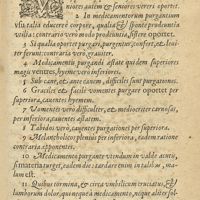 niores autem & seniores vereri oportet.
2 In medicamentorum purgantium
usu talia educere corpore, qualia & sponte prodeuntia
utilia: contrario vero modo prodeuntia, sistere oportet.
3 Si qualia oportet purgari, purgentur, confert, & leui-
ter ferunt: contraria vero, grauiter.
4 Medicamentis purgandi æstate quidem superiores
magis ventres, hyeme vero inferiores.
5 Sub cane, & ante canem, difficiles sunt purgationes.
6 Graciles et facile vomentes purgare oportet per
superiora, cauentes hyemem.
7 Vomentes vero difficulter, et mediocriter carnosi,
per inferiora, cauentes æstatem.
8 Tabidos vero, cauentes purgationes per superiora.
9 Melancholicos plenius per inferiora, eadem ratione
contraria exponentes.
10 Medicamento purgante utendum in valde acutis,
si materia turget, eadem die: tardare enim in talibus, ma-
lum est.
11 Quibus tormina, & circa umbilicum cruciatus, &
lumborum dolor, qui neque à medicamento, neque aliter sol-